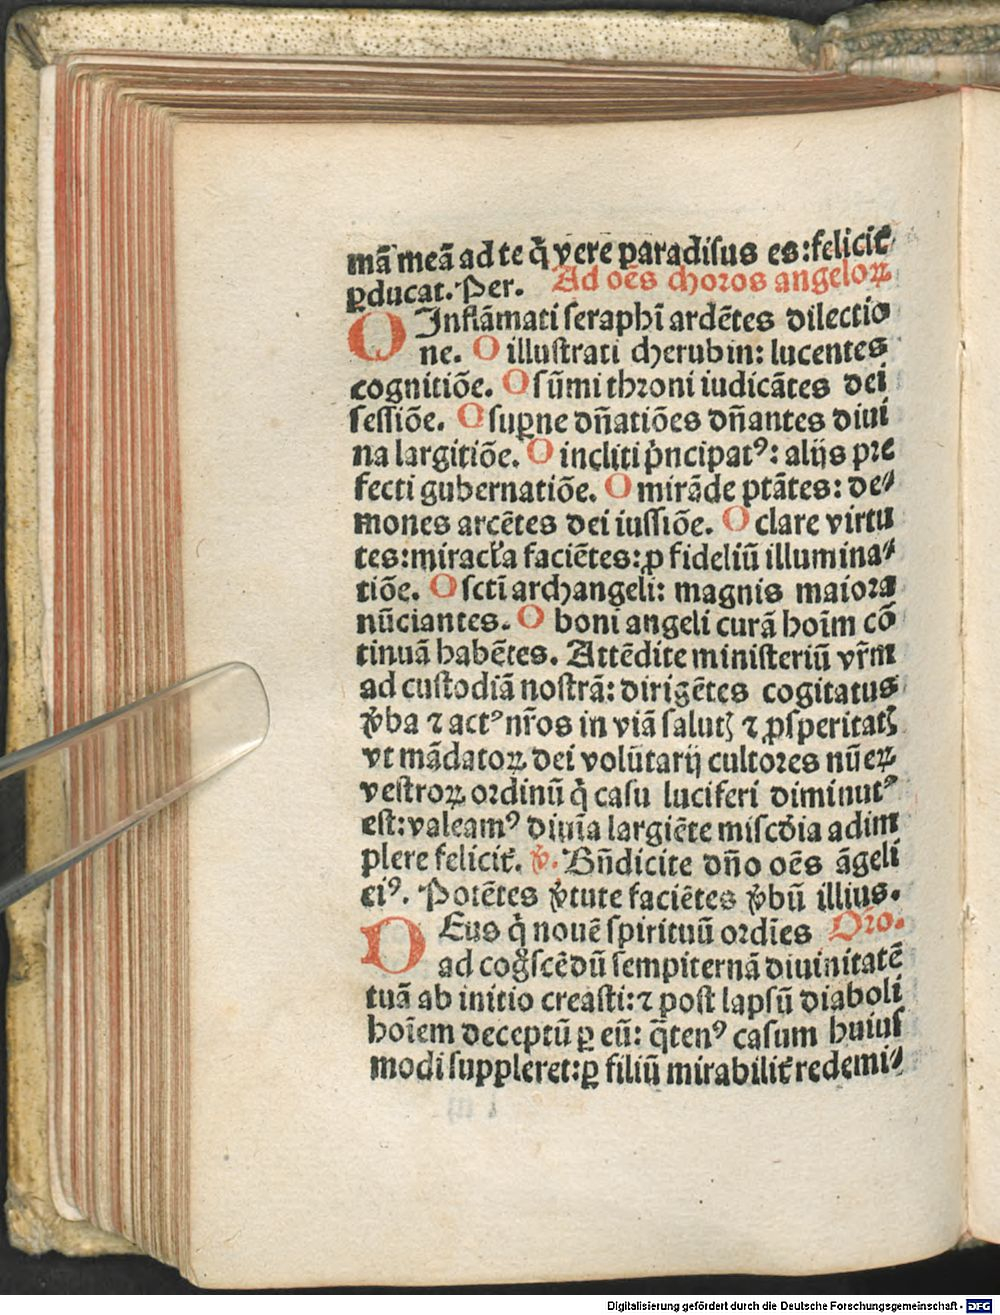 mā meā ad te q̄ vere paradisus es: felicit̄
ꝑducat. Per. Ad oēs choros angeloꝝ
O Inflāmati seraphī ardētes dilectio
ne. O illustrati cherubin: lucentes
cognitiōe. O sūmi throni iudicātes dei
sessiōe. O suꝑne dn̄atiōes dn̄antes diui
na largitiōe. O incliti p̄ncipatꝰ: alijs pre
fecti gubernatiōe. O mirāde ptātes: de⸗
mones arcētes dei iussiōe. O clare virtu
tes: miracl̄a faciētes: ꝓ fideliū illumina⸗
tiōe. O sctī archangeli: magnis maiora
nūciantes. O boni angeli curā hoīm cō
tinuā habētes. Attēdite ministeriū vr̄m
ad custodiā nostrā: dirigētes cogitatus
v̄ba ⁊ actꝰ nr̄os in viā salutꝭ ⁊ ꝓsperitatꝭ
vt mādatoꝝ dei volūtarij cultores nūeꝝ
vestroꝝ ordinū q̄ casu luciferi diminutꝰ
est: valeamꝰ diuīa largiēte misc̄dia adim
plere felicit̄. v̄. Bn̄dicite dn̄o oēs āgeli
eiꝰ. Potētes v̄tute faciētes v̄bū illius.
DEus q̄ nouē spirituū ordīes Oro.
ad cog̊scēdū sempiternā diuinitatē
tuā ab initio creasti: ⁊ post lapsū diaboli
hoīem deceptū ꝑ eū: q̄tenꝰ casum huius
modi suppleret: ꝑ filiū mirabilit̄ redemi⸗
Digitalisierung gefördert durch die Deutsche Forschungsgemeinschaft - DFG